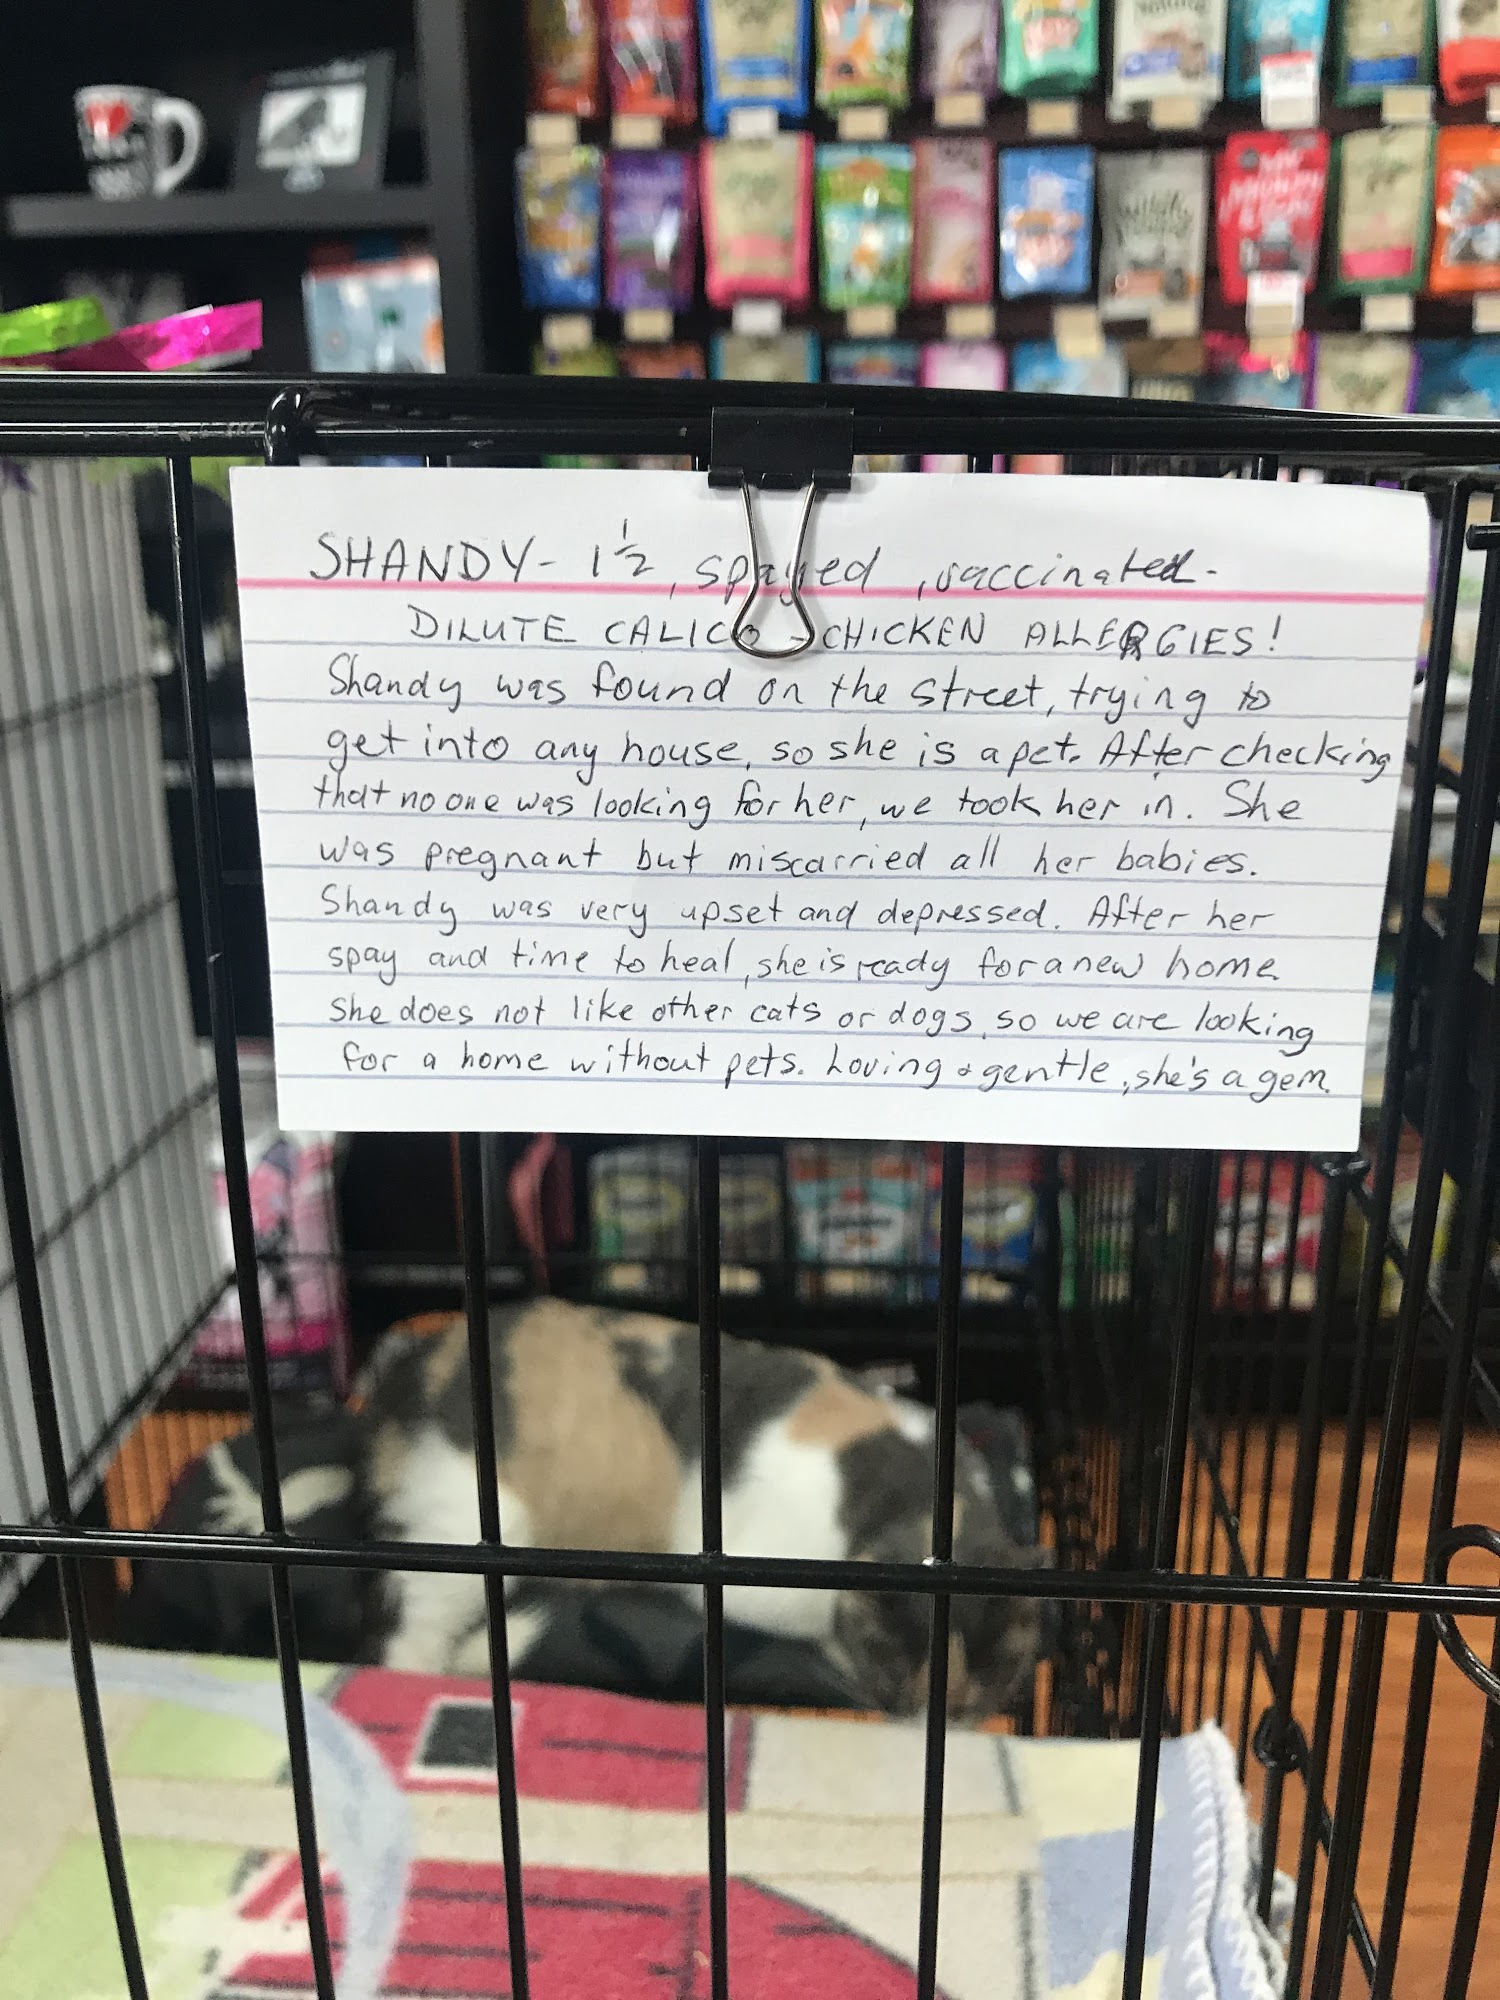 SHANDY- 1½, spayed, vaccinated-
DILUTE CALICO - CHICKEN ALLERGIES!
Shandy was found on the street, trying to
get into any house, so she is a pet. After checking
that no one was looking for her, we took her in. She
was pregnant but miscarried all her babies.
Shandy was very upset and depressed. After her
spay and time to heal, she is ready for a new home.
She does not like other cats or dogs, so we are looking
for a home without pets. Loving & gentle, she's a gem.